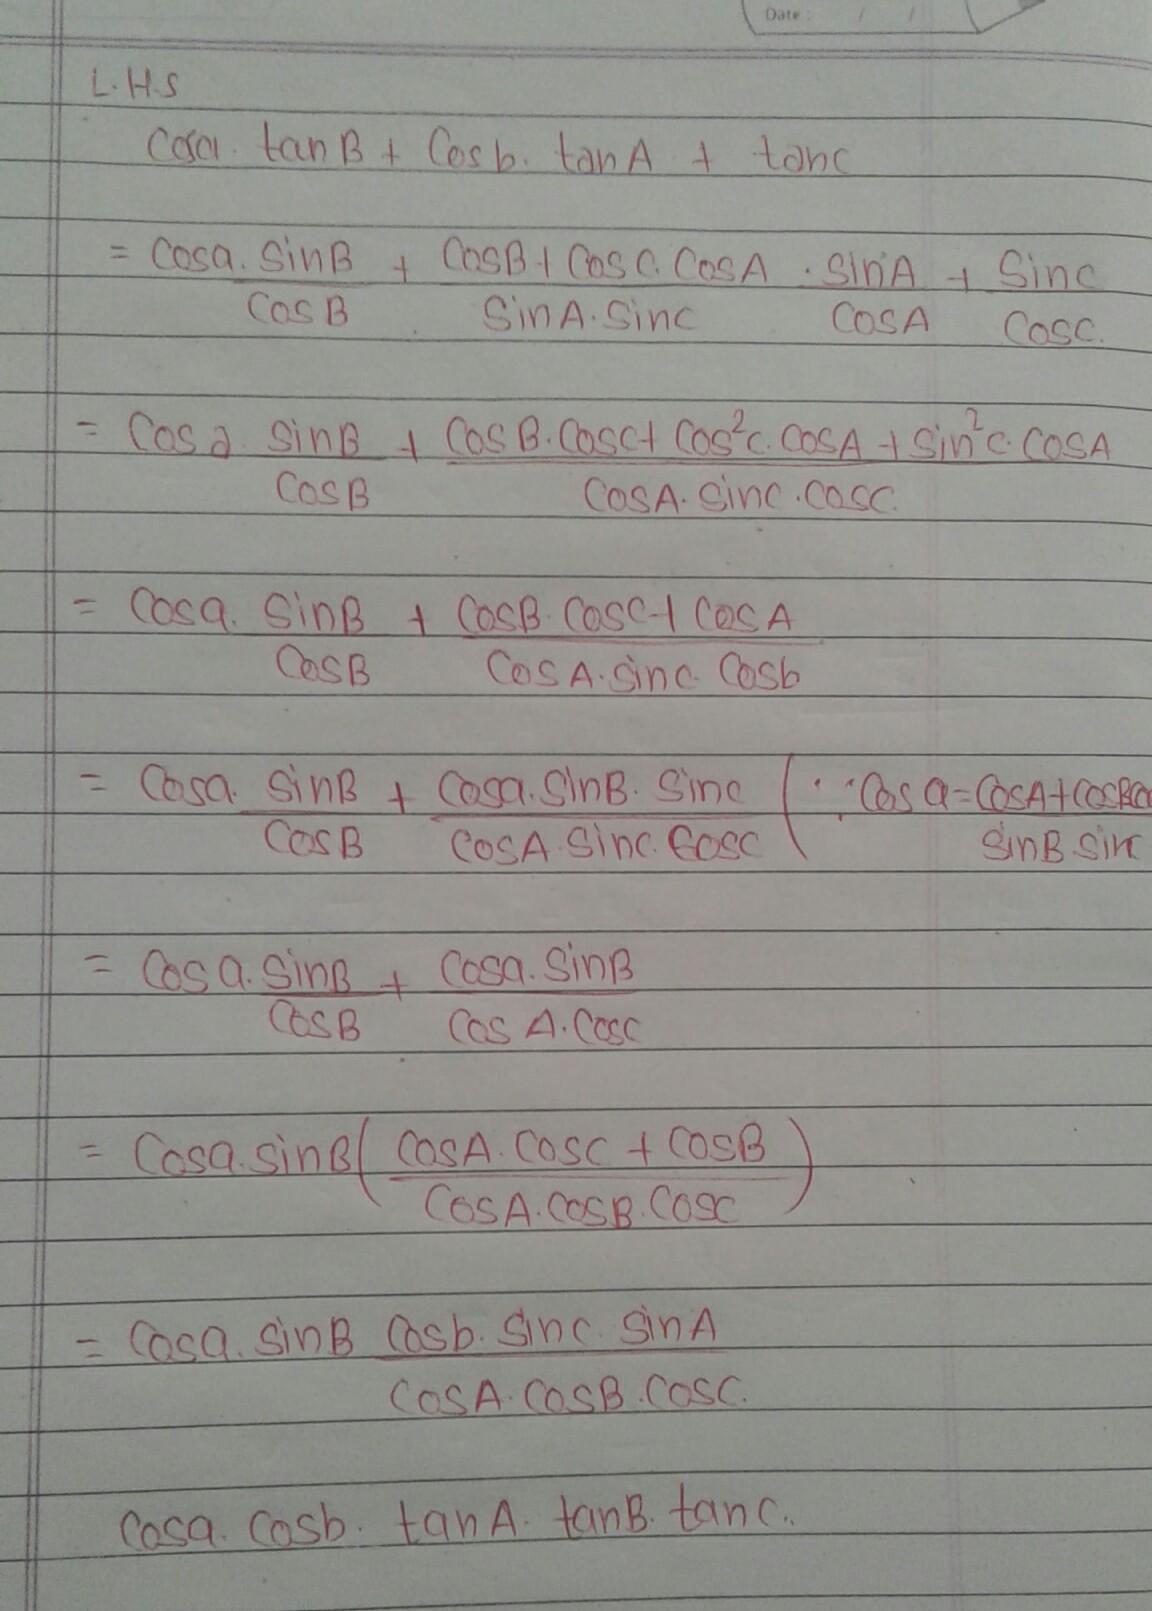 Date : / /
L.H.S
Cosa. tanB + Cosb. tanA + tanc
= Cosa. SinB/CosB + CosB+CosC.CosA/SinA.Sinc . SinA/CosA + Sinc/Cosc.
= Cosa. SinB/CosB + CosB.Cosc+Cos²c.CosA+Sin²c.CosA/CosA.Sinc.Cosc.
= Cosa. SinB/CosB + CosB.Cosc+CosA/CosA.Sinc.Cosb
= Cosa. SinB/CosB + Cosa.SinB.Sinc/CosA.Sinc.Cosc (∵Cos a=CosA+CosBco/SinB.Sin
= Cosa.SinB/CosB + Cosa.SinB/CosA.Cosc
= Cosa.SinB(CosA.Cosc + CosB/CosA.CosB.Cosc)
= Cosa.SinB Cosb.Sinc.SinA/CosA.CosB.Cosc.
Cosa. Cosb. tanA. tanB. tanc.